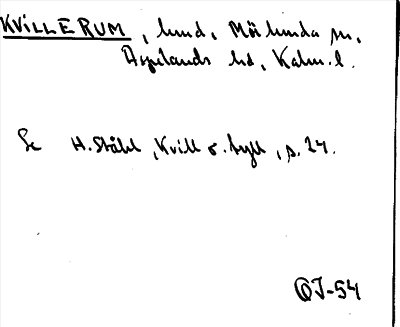 KVILLERUM, lund, Mörlunda sn,
Aspelands hd, Kalm. l.
Se H. Ståhl, Kvill o. tyll, s. 24.
OJ-54